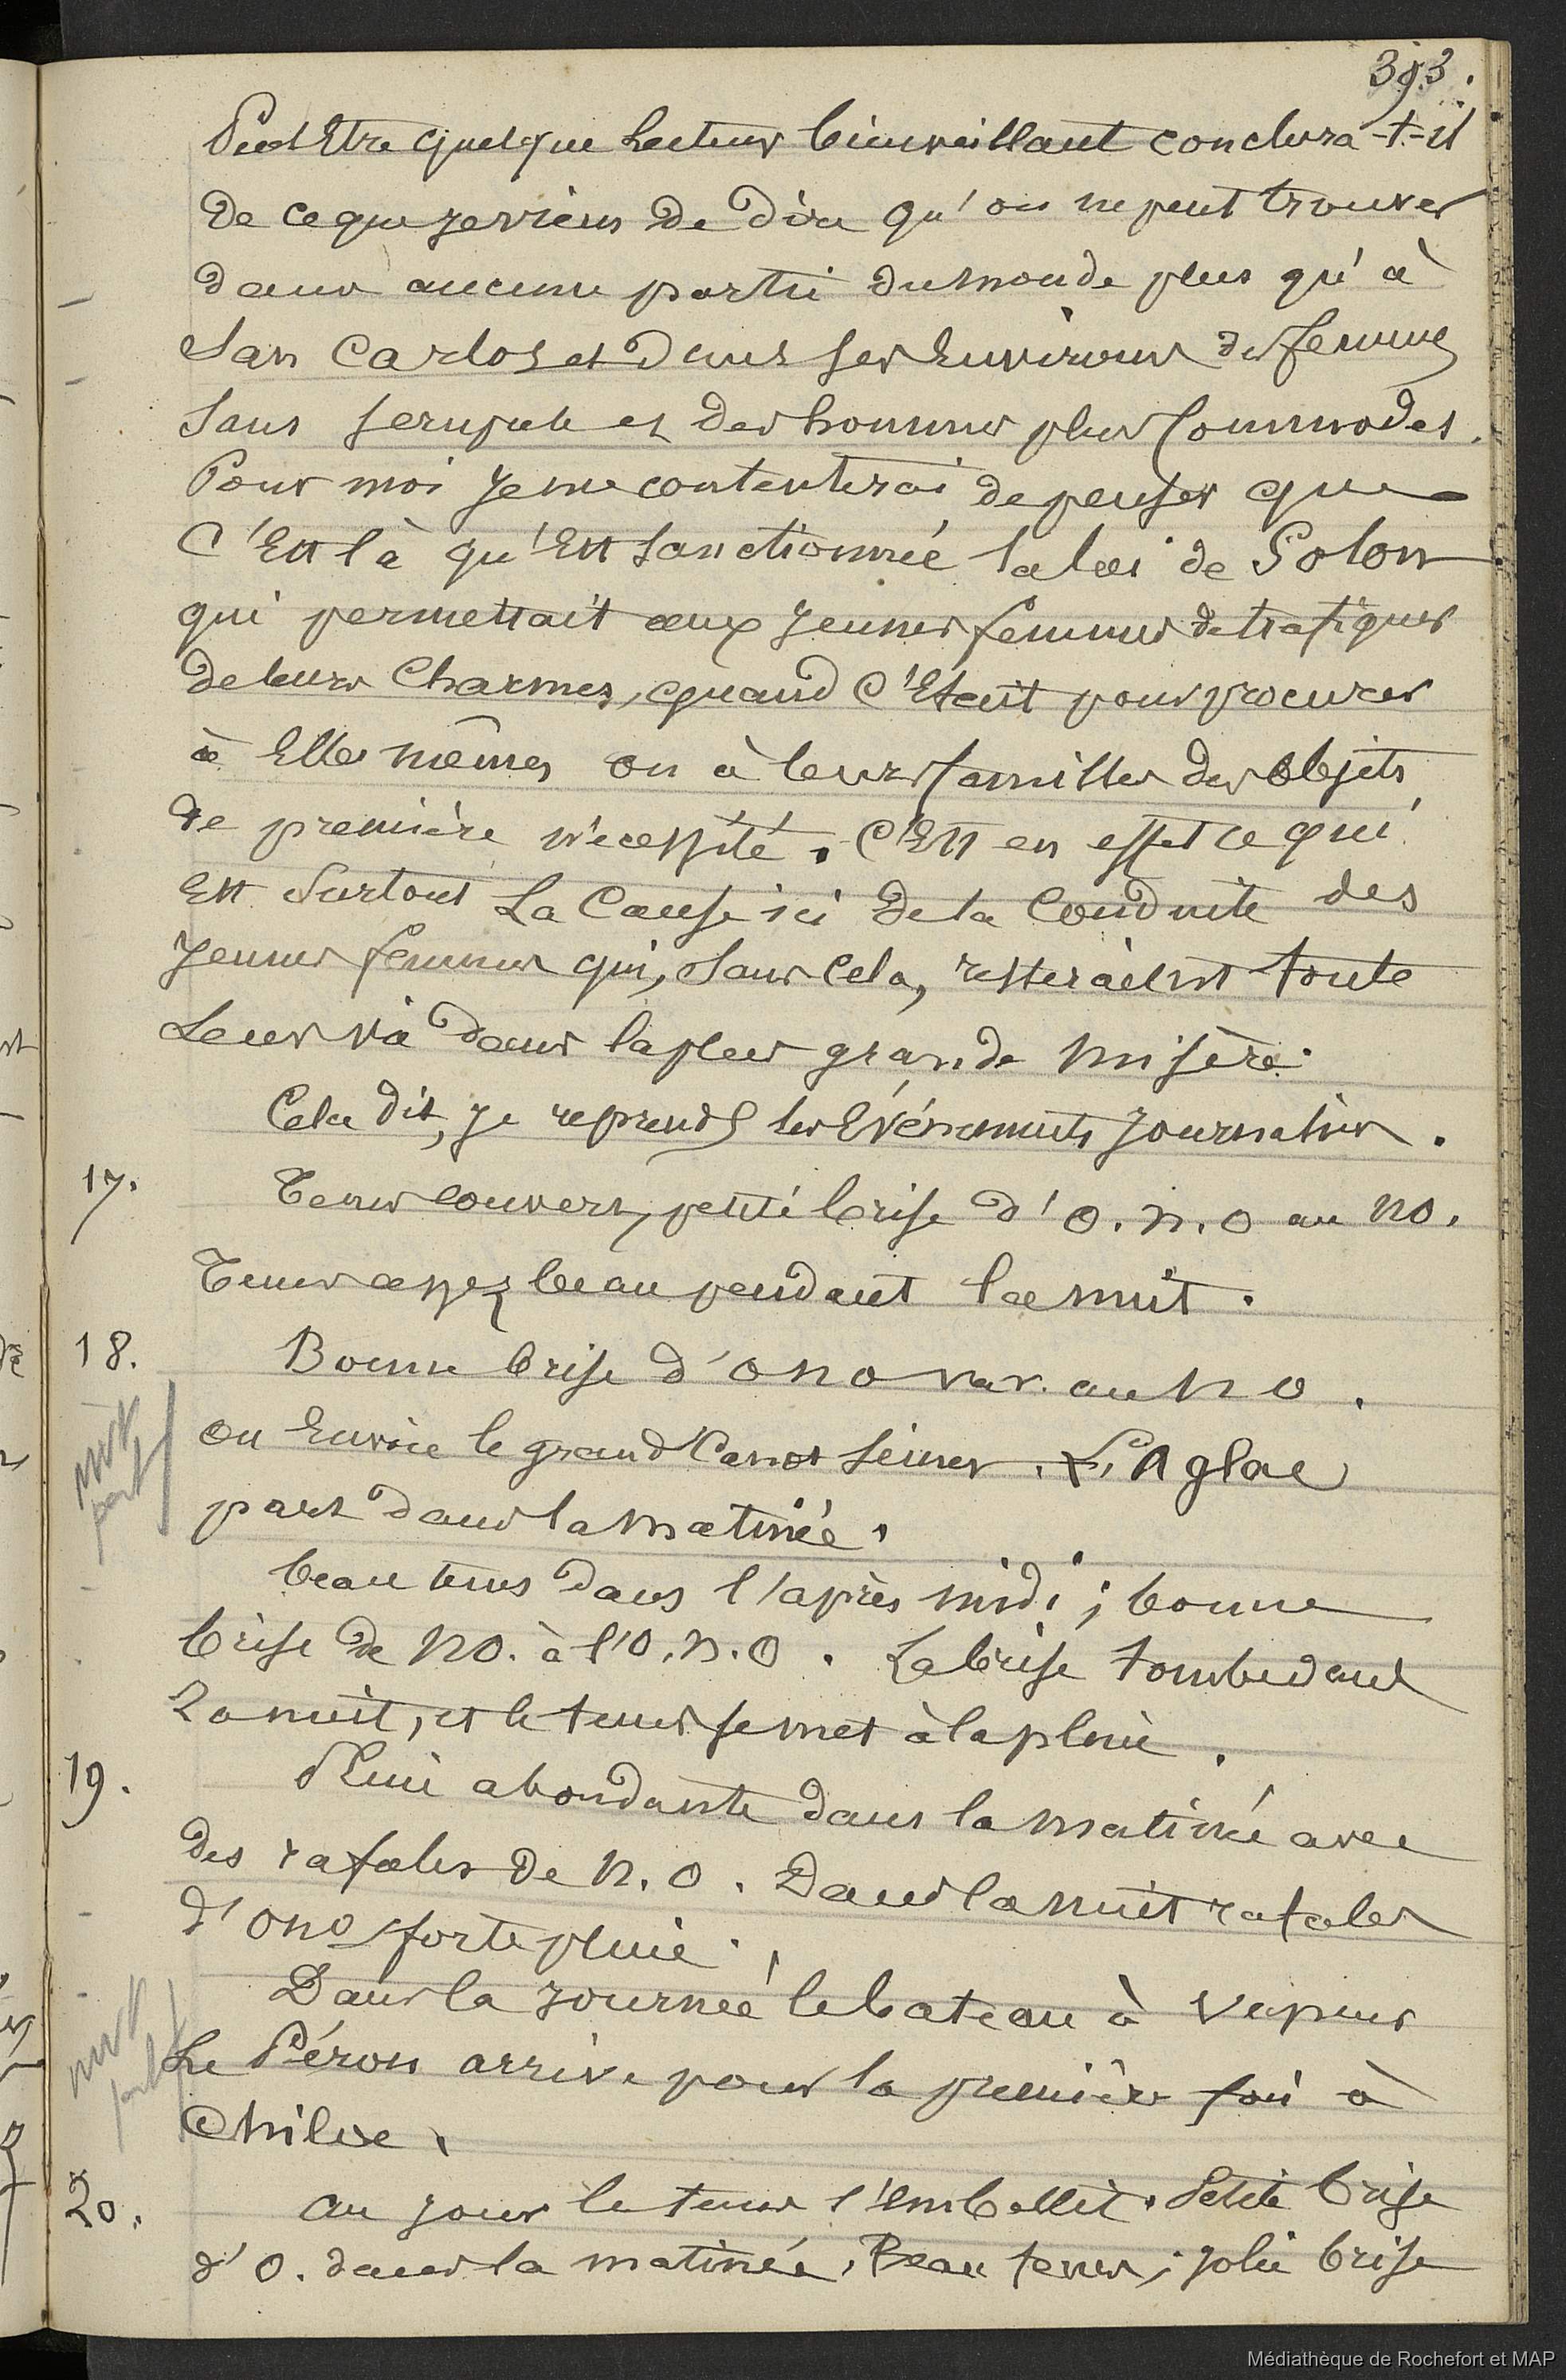 393.
Peut Etre quelque Lecteur bienveillant conclura-t-il
De ceque jeviens De Dire qu'on nepeut trouver
dans aucune partie dumonde plus qu'à
San Carlos et Dans ses Environs des femmes
Sans scrupule et Des hommes plus Commodes.
Pour moi Jeme contenterai depenser que
C'Est là qu'Est sanctionnée laloi de Solon
qui permettait aux Jeunes femmes detrafiquer
Deleurs Charmes, quand C'Etait pourprocurer
à Elles mêmes ou à leurs familles des objets
de première nécessité. C'Est en effet ce qui
Est Surtout La Cause ici De la Conduite des
Jeunes femmes qui, Sans Cela, resteraient toute
Leur vie Dans laplus grande misère.
Cela Dit, je reprends les Evénements Journaliers.
17. Tems couvert, petite brise d'O.N.O au NO.
Tems assez beau pendant la nuit.
18. Bonne brise d'ONO var. au NO.
on Envoie le grand Canot Seiner. L'Aglae
part Dans la matinée.
beau tems Dans l'après midi; bonne
brise de NO. à l'O.N.O. La brise tombe dans
La nuit, et le tems se met à la pluie.
19. Pluie abondante Dans la matinée avec
des rafales De N.O. Dans la nuit rafales
d'ONO forte pluie.
Dans la Journée le bateau à vapeur
Le Péron arrive pour la première fois à
Chiloe.
20. Au jour le tems s'embellit. Petite brise
d'O. dans la matinée. Beau tems; jolie brise
Médiathèque de Rochefort et MAP